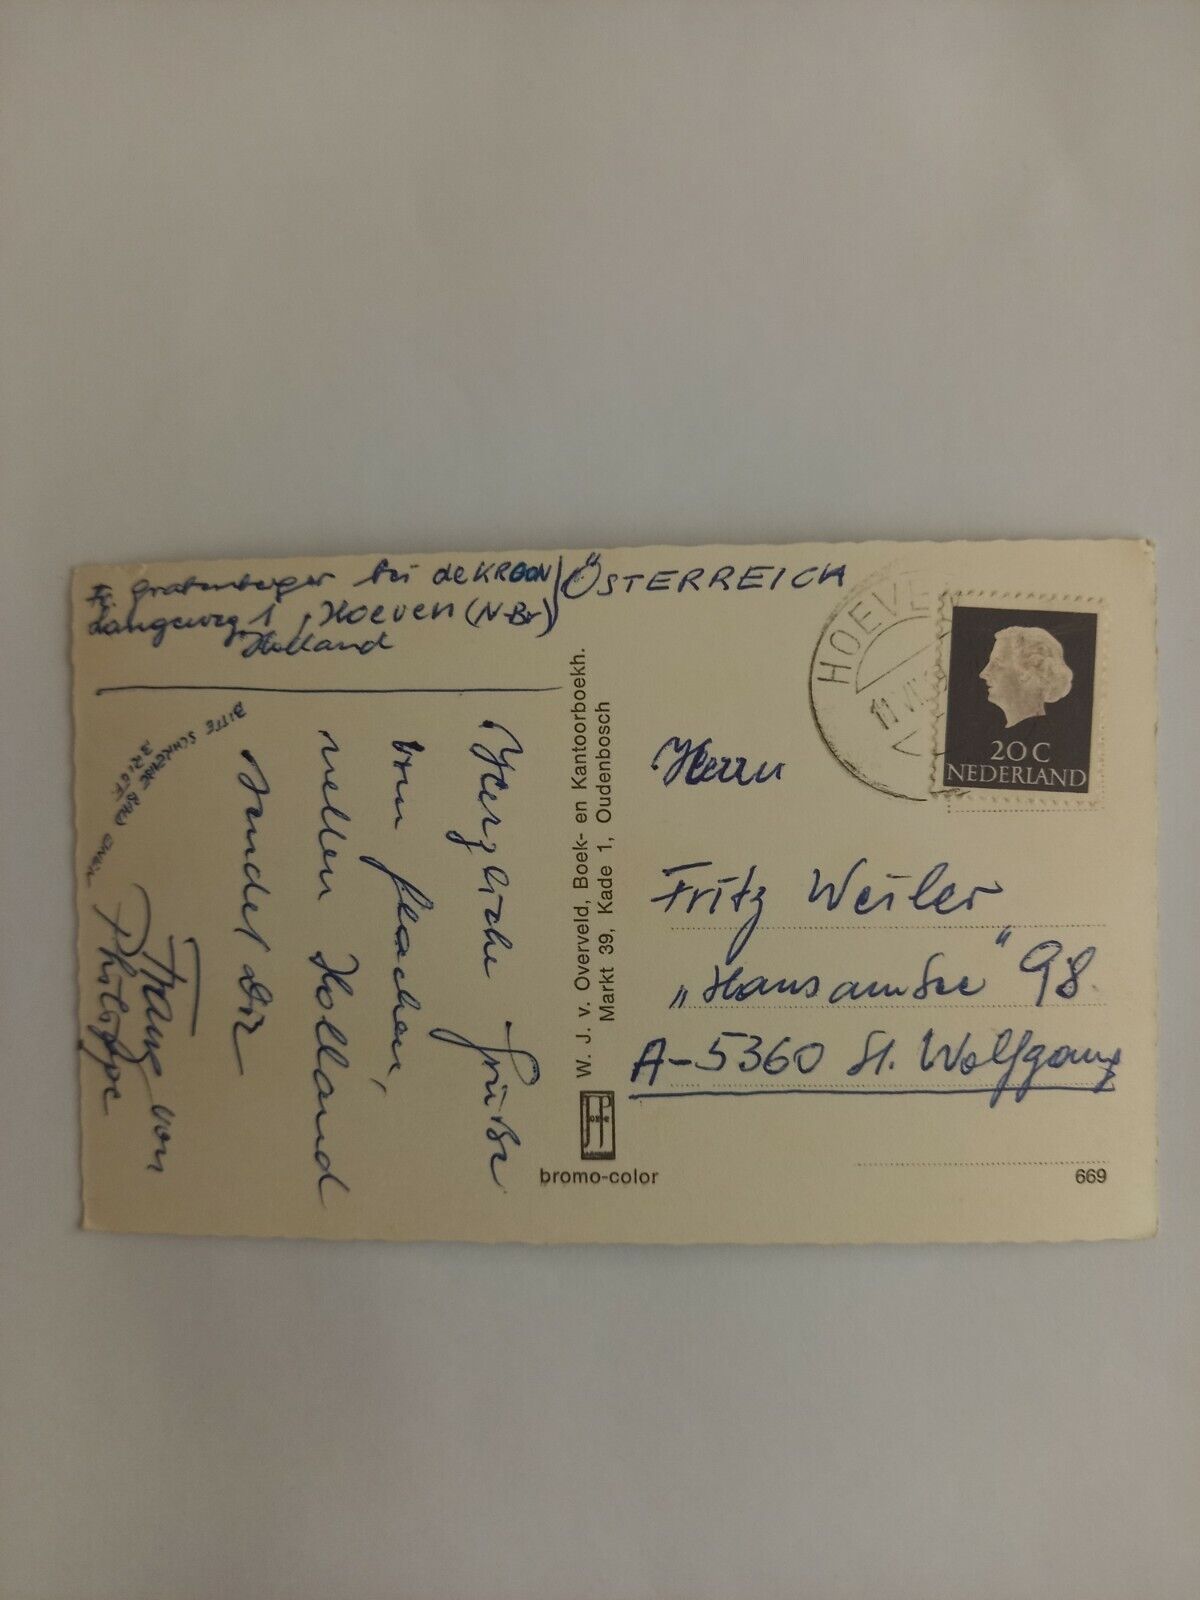 Fr. Grabenberger bei de KROON
Langeweg 1, Hoeven (N-Br)
Holland
ÖSTERREICH
HOEVE
11 VII
20 C
NEDERLAND
Herrn
Fritz Weiler
„Haus am See“ 98.
A-5360 St. Wolfgang
Herzliche Grüße
vom flachen,
netten Holland
sendet Dir
Franz von
Philippe
BITTE SCHREIBE
BRIEF
W. J. v. Overveld, Boek- en Kantoorboekh.
Markt 39, Kade 1, Oudenbosch
JP
bromo-color
669